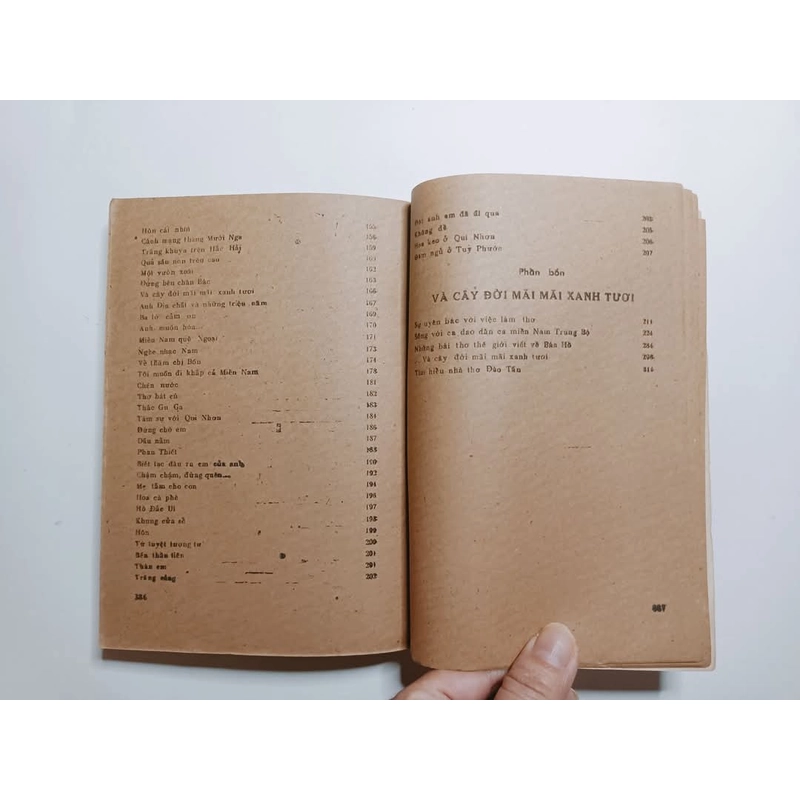 Hòn cái nhìn 155
Cách mạng tháng Mười Nga 158
Trăng khuya trên Hắc Hải 159
Quả sần non trêu cao 161
Một vườn xoài 162
Đứng bên chân Bác 163
Và cây đời mãi mãi xanh tươi 166
Anh Địa chất và những triệu năm 167
Ba lô cảm ơn 169
Anh muốn hôn... 170
Miền Nam quê Ngoại 171
Nghe nhạc Nam 173
Về thăm chị Bốn 174
Tôi muốn đi khắp cả Miền Nam 178
Chén nước 181
Thơ bát cú 182
Thác Gu Ga 183
Tâm sự với Qui Nhơn 184
Đừng chờ em 186
Dấu nằm 187
Phan Thiết 188
Biết lạc đâu ra em của anh 190
Chậm chậm, đừng quên... 192
Mẹ tắm cho con 194
Hoa cà phê 196
Hồ Đắc Di 197
Khung cửa sổ 198
Hôn 199
Từ tuyệt tương tư 200
Bến thần tiên 201
Thăm em 201
Trăng sáng 202
386
anh em đã đi qua 202
Không đề 205
Hoa Leo ở Qui Nhơn 206
Đêm ngủ ở Tuy Phước 207
Phần bốn
VÀ CÂY ĐỜI MÃI MÃI XANH TƯƠI
Sự uyên bác với việc làm thơ 211
Sống với ca dao dân ca miền Nam Trung Bộ 224
Những bài thơ thế giới viết về Bác Hồ
Và cây đời mãi mãi xanh tươi
Tìm hiểu nhà thơ Đào Tấn
387